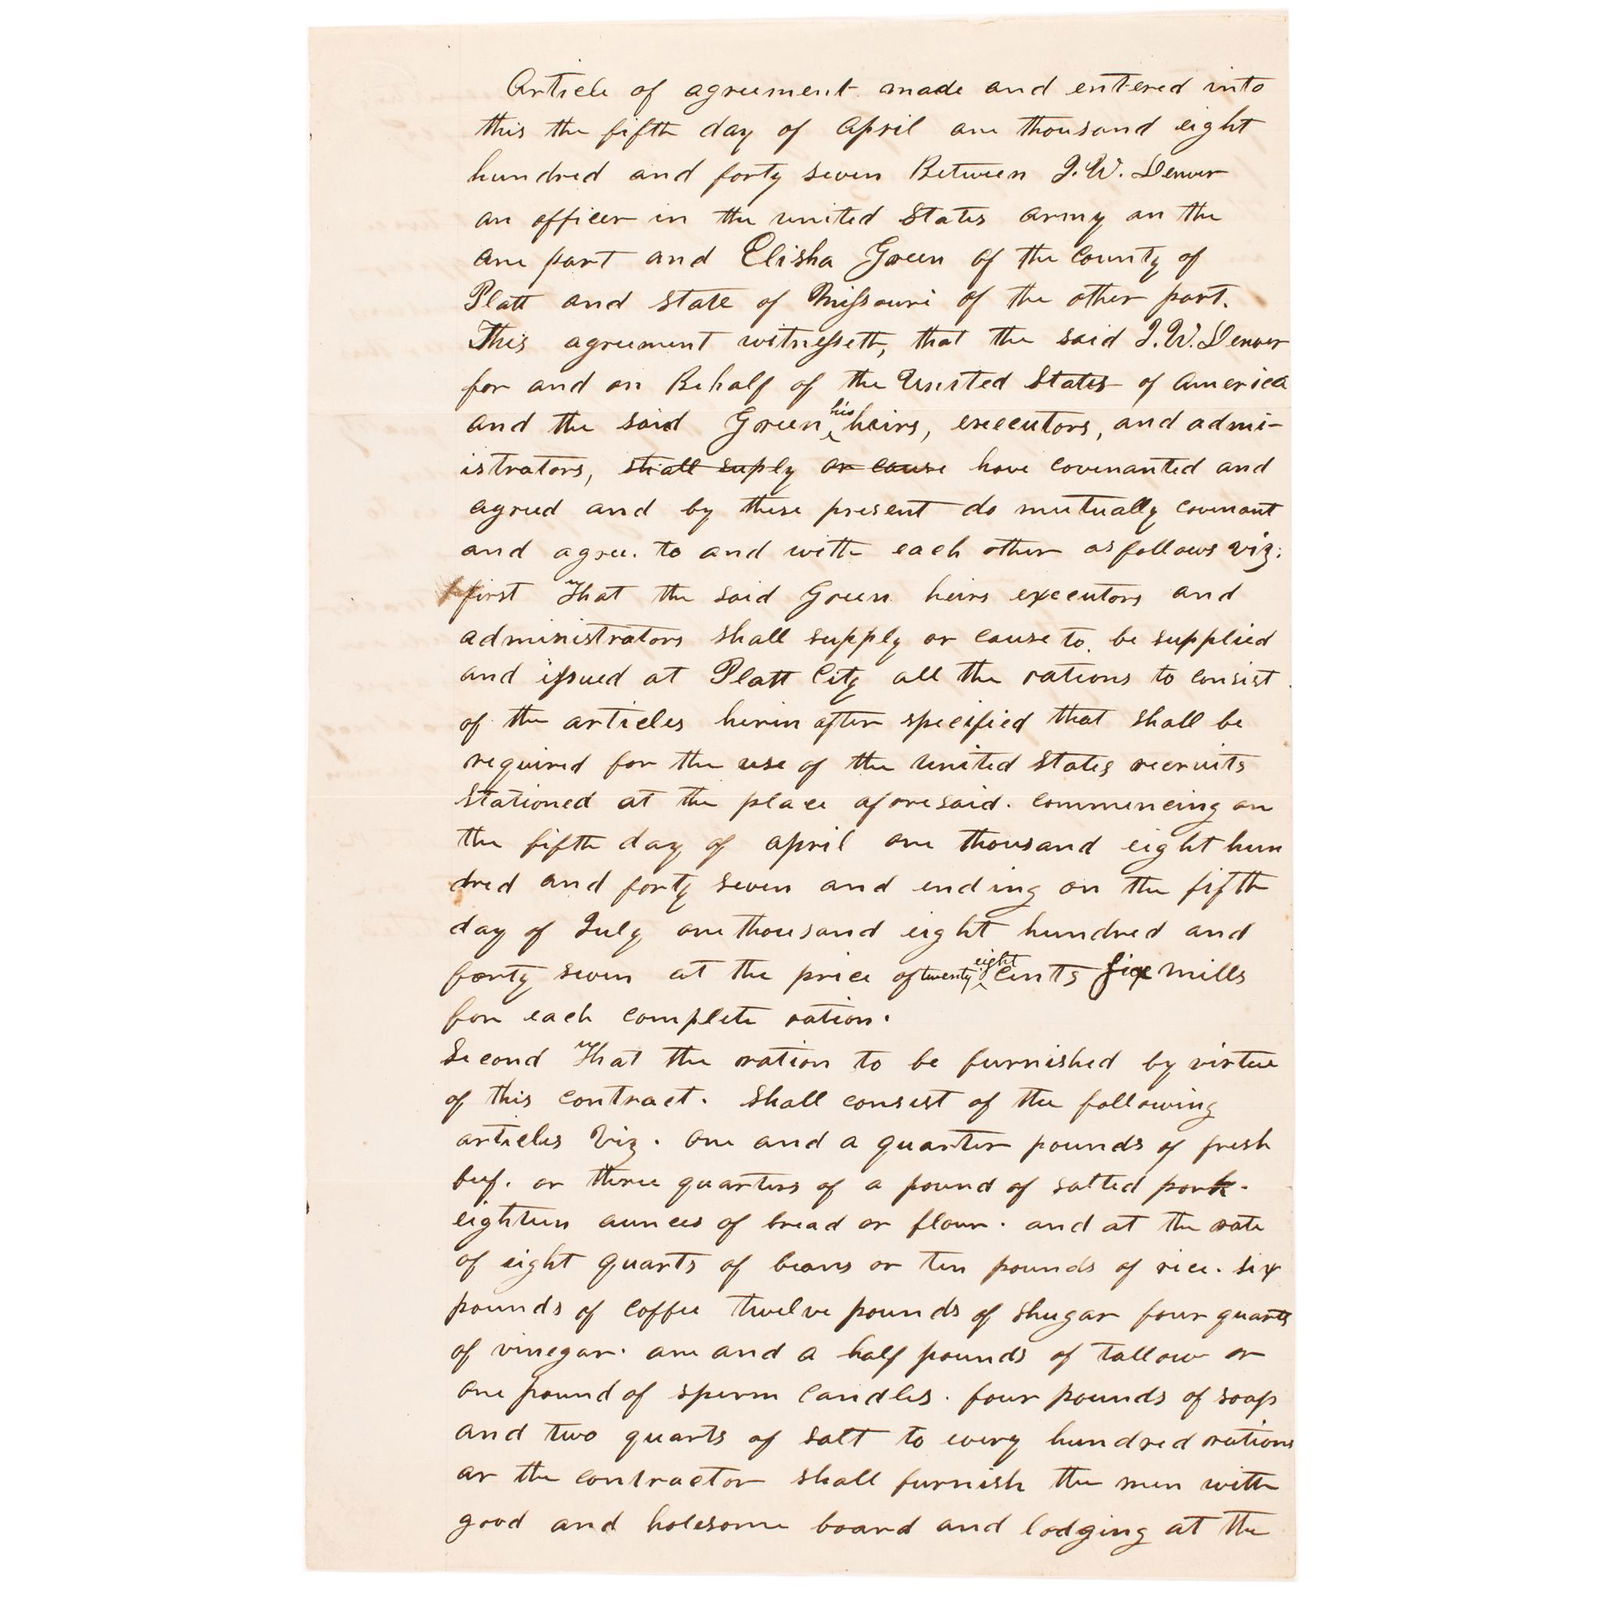 Article of agreement made and entered into
this the fifth day of April one thousand eight
hundred and forty seven Between J. W. Denver
an officer in the united States army on the
one part and Elisha Green of the County of
Platt and state of Missouri of the other part.
This agreement witnesseth, that the said J. W. Denver
for and on Behalf of the United States of America
and the said Green his heirs, executors, and admini-
istrators, shall suply or cause have covenanted and
agreed and by these present do mutually covenant
and agree. to and with each other as follows viz:
first That the said Green heirs executors and
administrators shall supply or cause to be supplied
and issued at Platt City all the rations to consist
of the articles herin after specified that shall be
required for the use of the united States recruits
stationed at the place aforesaid. commencing on
the fifth day of april one thousand eight hun
dred and forty seven and ending on the fifth
day of July one thousand eight hundred and
forty seven at the price of twenty eight cents six mills
for each complete ration.
Second That the ration to be furnished by virtue
of this contract. shall consist of the following
articles Viz. one and a quarter pounds of fresh
beef. or three quarters of a pound of salted pork.
eighteen ounces of bread or flour. and at the rate
of eight quarts of beans or ten pounds of rice. six
pounds of coffee twelve pounds of shugar four quarts
of vinegar. one and a half pounds of tallow or
one pound of sperm candles. four pounds of soap
and two quarts of salt to every hundred rations
or the contractor shall furnish the men with
good and holesome board and lodging at the